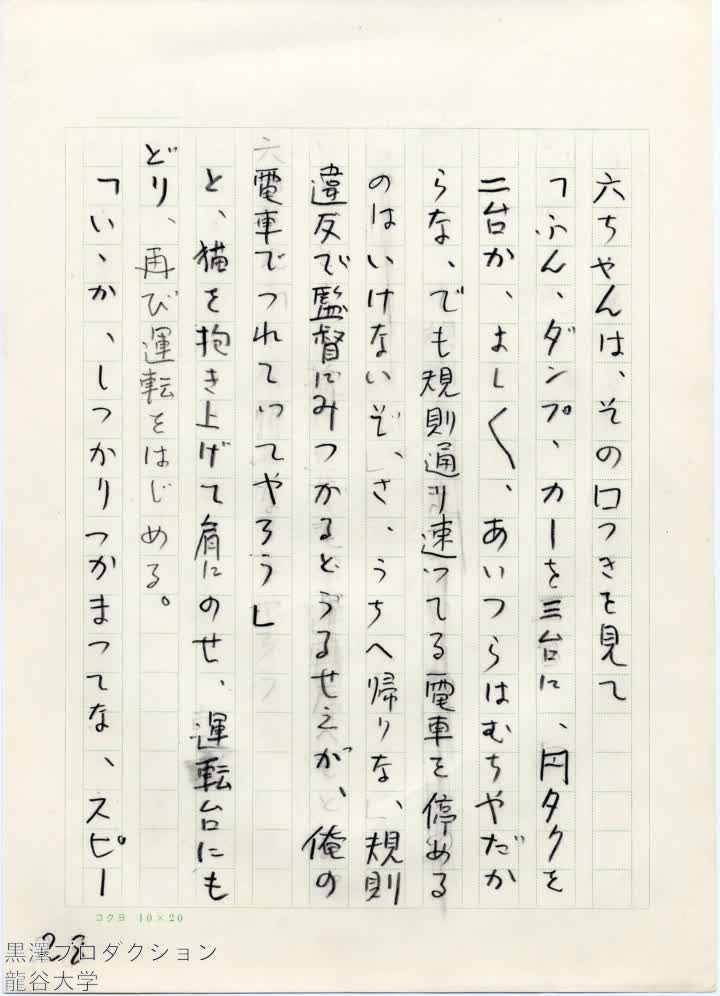 六ちやんは、その口つきを見て
「ふん、ダンプ、カーを三台に、円タクを
二台か、よし〱、あいつらはむちやだか
らな、でも規則通り速つてる電車を停める
のはいけないぞ、さ、うちへ帰りな、規則
違反で監督にみつかるとうるせえが、俺の
電車でつれていつてやろう」
と、猫を抱き上げて肩にのせ、運転台にも
どり、再び運転をはじめる。
「いゝか、しつかりつかまつてな、スピー
コクヨ 10×20
22
黒澤プロダクション
龍谷大学